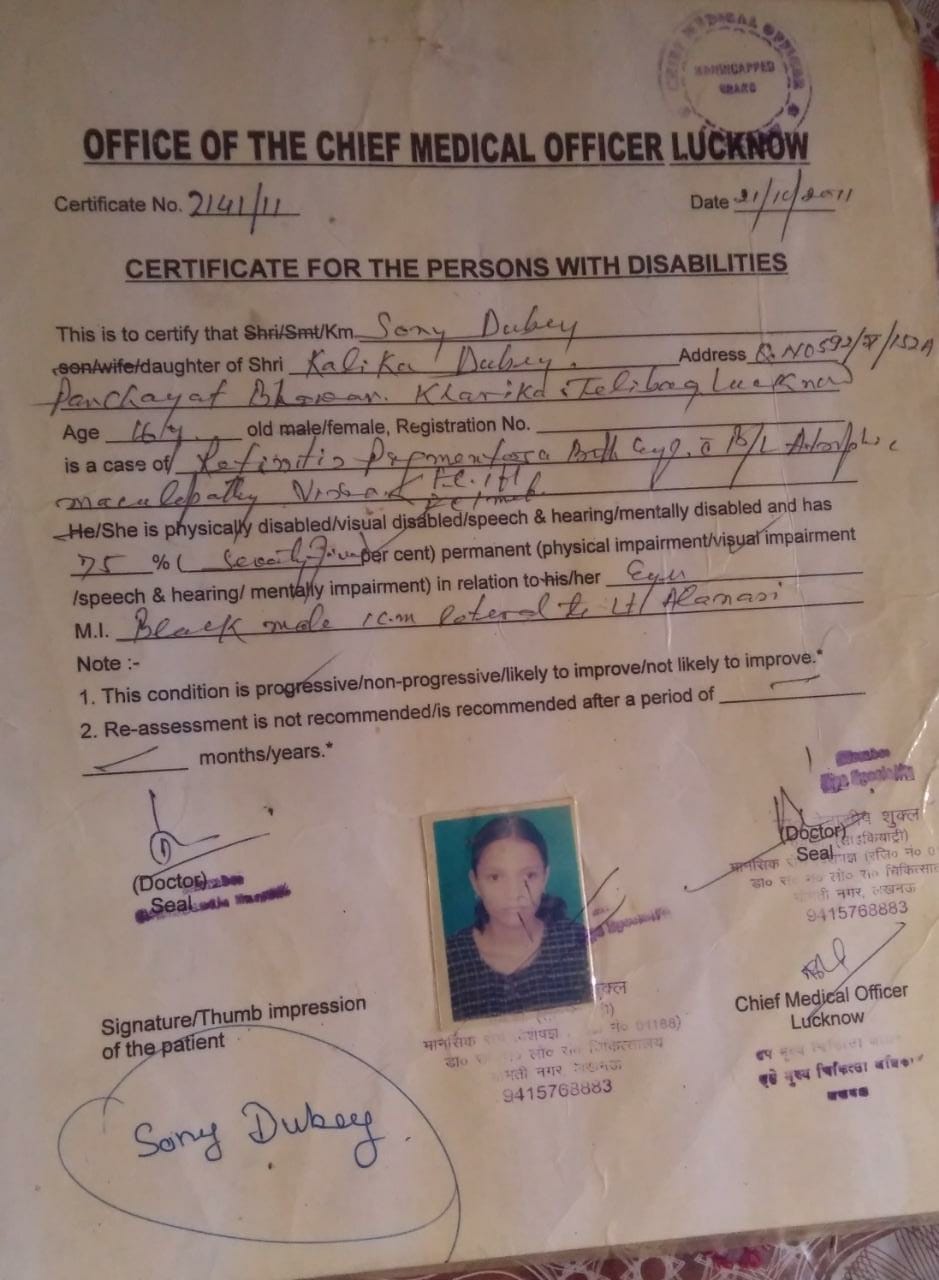 CHIEF MEDICAL OFFICER
HANDICAPPED
BOARD
OFFICE OF THE CHIEF MEDICAL OFFICER LUCKNOW
Certificate No. 2141/11 Date 21/10/2011
CERTIFICATE FOR THE PERSONS WITH DISABILITIES
This is to certify that Shri/Smt/Km. Sony Dubey
son/wife/daughter of Shri Kalika Dubey. Address
Panchayat Bhawan. Kharika Telibag Lucknow
Age 16/y. old male/female, Registration No.
is a case of Retinitis Pigmentosa Both Eye. c̄ B/L Atrophic
maculopathy Vision
He/She is physically disabled/visual disabled/speech & hearing/mentally disabled and has
75 % ( Seventy Five per cent) permanent (physical impairment/visual impairment
/speech & hearing/ mentally impairment) in relation to his/her Eye
M.I. Black mole 1cm lateral to Lt/
Note :-
1. This condition is progressive/non-progressive/likely to improve/not likely to improve.*
2. Re-assessment is not recommended/is recommended after a period of
months/years.*
(Doctor)
Seal
Eye Specialist
(Doctor)
Seal
शुक्ल
(साइकियाट्री)
मानसिक
चिकित्सालय
गोमती नगर, लखनऊ
9415768883
Chief Medical Officer
Lucknow
Signature/Thumb impression
of the patient
शुक्ल
मानसिक नं० 01188)
चिकित्सालय
गोमती नगर, लखनऊ
9415768883
मुख्य चिकित्सा
लखनऊ
Sony Dubey.